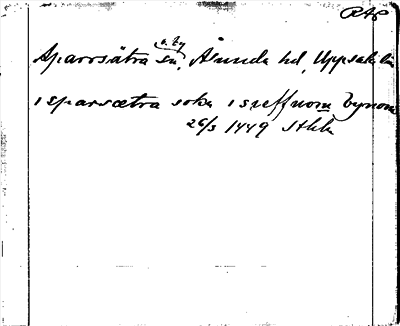 RAP
o. by
Sparrsätra sn, Åsunda hd, Uppsala län
i sparsætra sokn i sneffnom bynom
26/3 1449 Sthlm